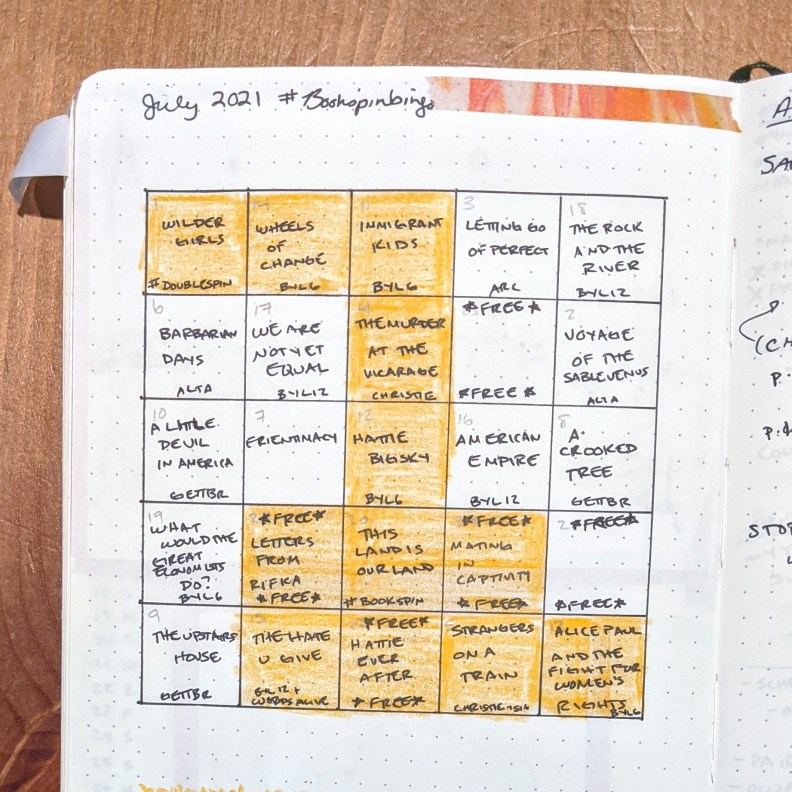 July 2021 #Bookspinbingo
1
WILDER
GIRLS
#DOUBLESPIN
14
WHEELS
OF
CHANGE
BYL6
11
IMMIGRANT
KIDS
BYL6
3
LETTING GO
OF PERFECT
ARC
18
THE ROCK
AND THE
RIVER
BYL12
6
BARBARIAN
DAYS
ALTA
17
WE ARE
NOT YET
EQUAL
BYL12
4
THE MURDER
AT THE
VICARAGE
CHRISTIE
*FREE*
*FREE*
2
VOYAGE
OF THE
SABLE VENUS
ALTA
10
A LITTLE
DEVIL
IN AMERICA
GETTBR
7
FRIENTIMACY
12
HATTIE
BIG SKY
BYL6
16
AMERICAN
EMPIRE
BYL12
8
A
CROOKED
TREE
GETTBR
19
WHAT
WOULD THE
GREAT
ECONOMISTS
DO?
BYL6
*FREE*
LETTERS
FROM
RIFKA
*FREE*
20
THIS
LAND IS
OUR LAND
#BOOKSPIN
*FREE*
MATING
IN
CAPTIVITY
*FREE*
*FREE*
*FREE*
9
THE UPSTAIRS
HOUSE
GETTBR
15
THE HATE
U GIVE
BYL12 +
WORDS ALIVE
*FREE*
HATTIE
EVER
AFTER
*FREE*
STRANGERS
ON A
TRAIN
ALICE PAUL
AND THE
FIGHT FOR
WOMEN'S
RIGHTS
BYL6